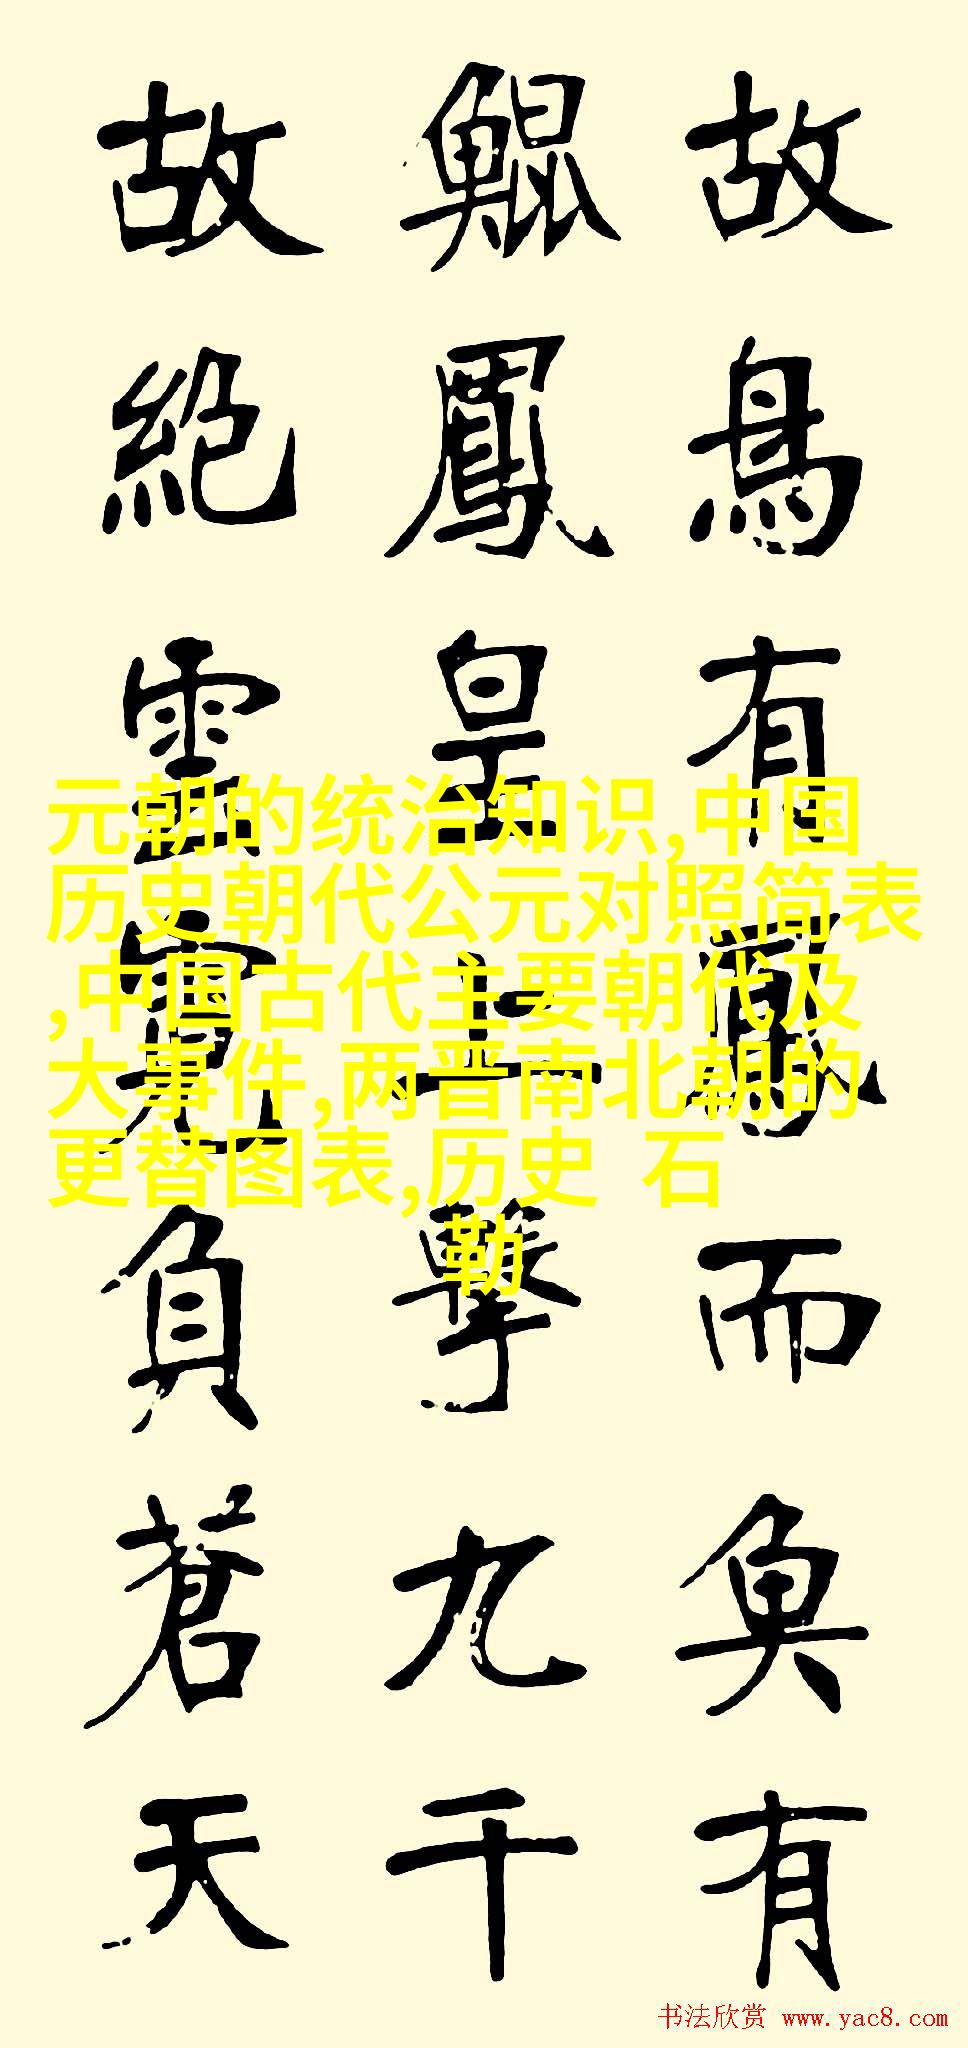 故鳥有鳳而魚有
鯤鳳皇上擊九千
故絕雲霓負蒼天
元朝的统治知识,中国
历史朝代公元对照简表
,中国古代主要朝代及
大事件,两晋南北朝的
更替图表,历史 石
勒
书法欣赏 www.yac8.com